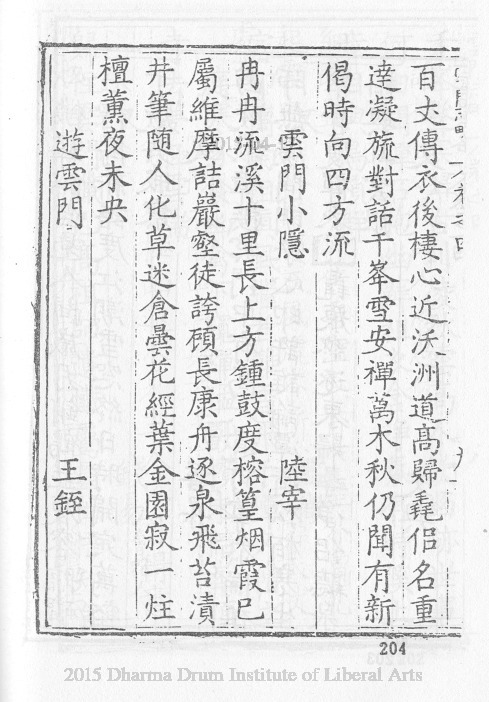 百丈傳衣後棲心近沃洲道髙歸毳侣名重
逹凝旒對話千峯雪安禪萬木秋仍聞有新
偈時向四方流
雲門小隱　陸宰
冉冉流溪十里長上方鍾鼓度榕篁烟霞已
屬維摩詰嚴壑徒誇顧長康舟逐泉飛苔漬
井筆随人化草迷倉曇花經葉金園寂一炷
檀薰夜未央
遊雲門　王銍
204
2015 Dharma Drum Institute of Liberal Arts